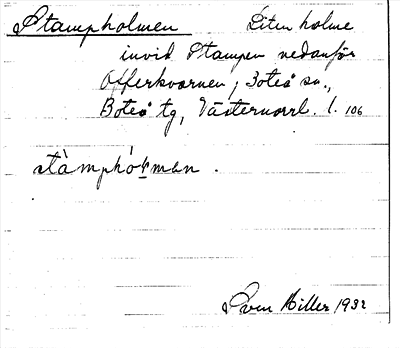 Stampholmen Liten holme
invid Stampen nedanför
Offerkvarnen, Boteå sn.,
Boteå tg, Västernorrl. l. 106
Sven Hiller 1932